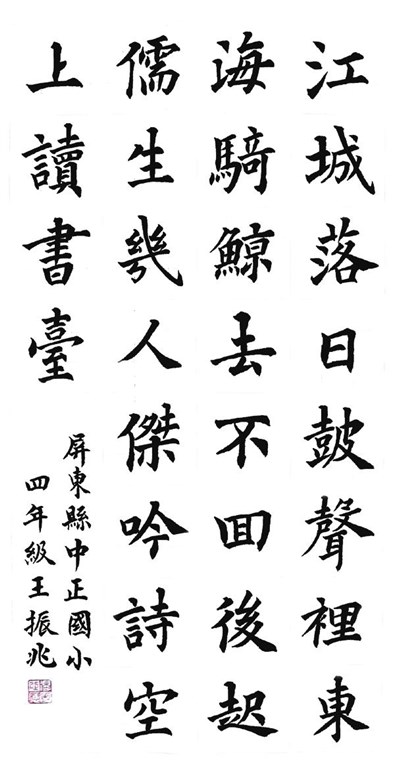 江城落日皷聲裡東
海騎鯨去不回後起
儒生幾人傑吟詩空
上讀書臺
屏東縣中正國小
四年級王振兆